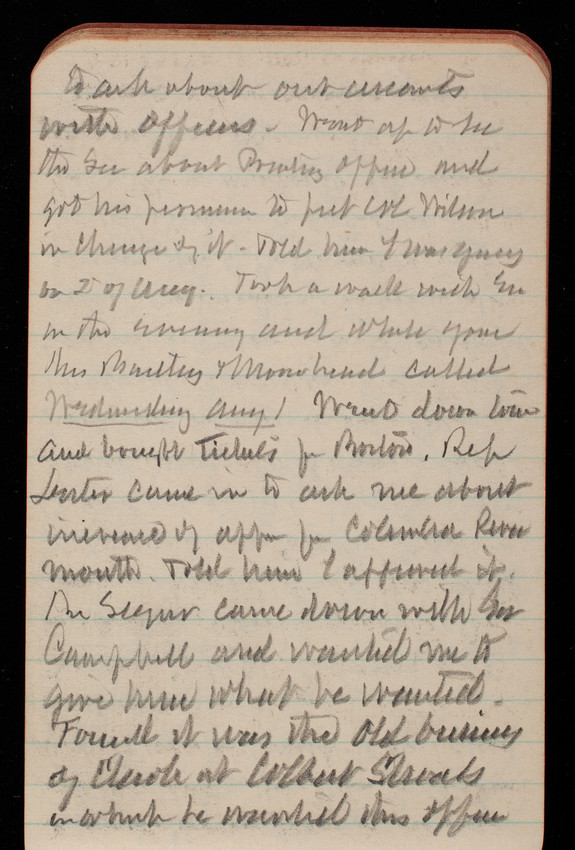 to ask about out accounts
with officers. Went up to see
the Sec about Printing office and
got his permission to put Col Wilson
in charge of it. Told him I was going
on 2 of Aug. Took a walk with Em
in the evening and while gone
Mrs & Moorhead called
Wednesday Aug 1 Went down town
and bought tickets for Boston. Rep
came in to ask me about
increase of appn for Columbia River
mouth. Told him I approved it.
Mr came down with Gov
Campbell and wanted me to
give him what he wanted.
Found it was the old business
of at Colbert Shoals
in which he wanted this office